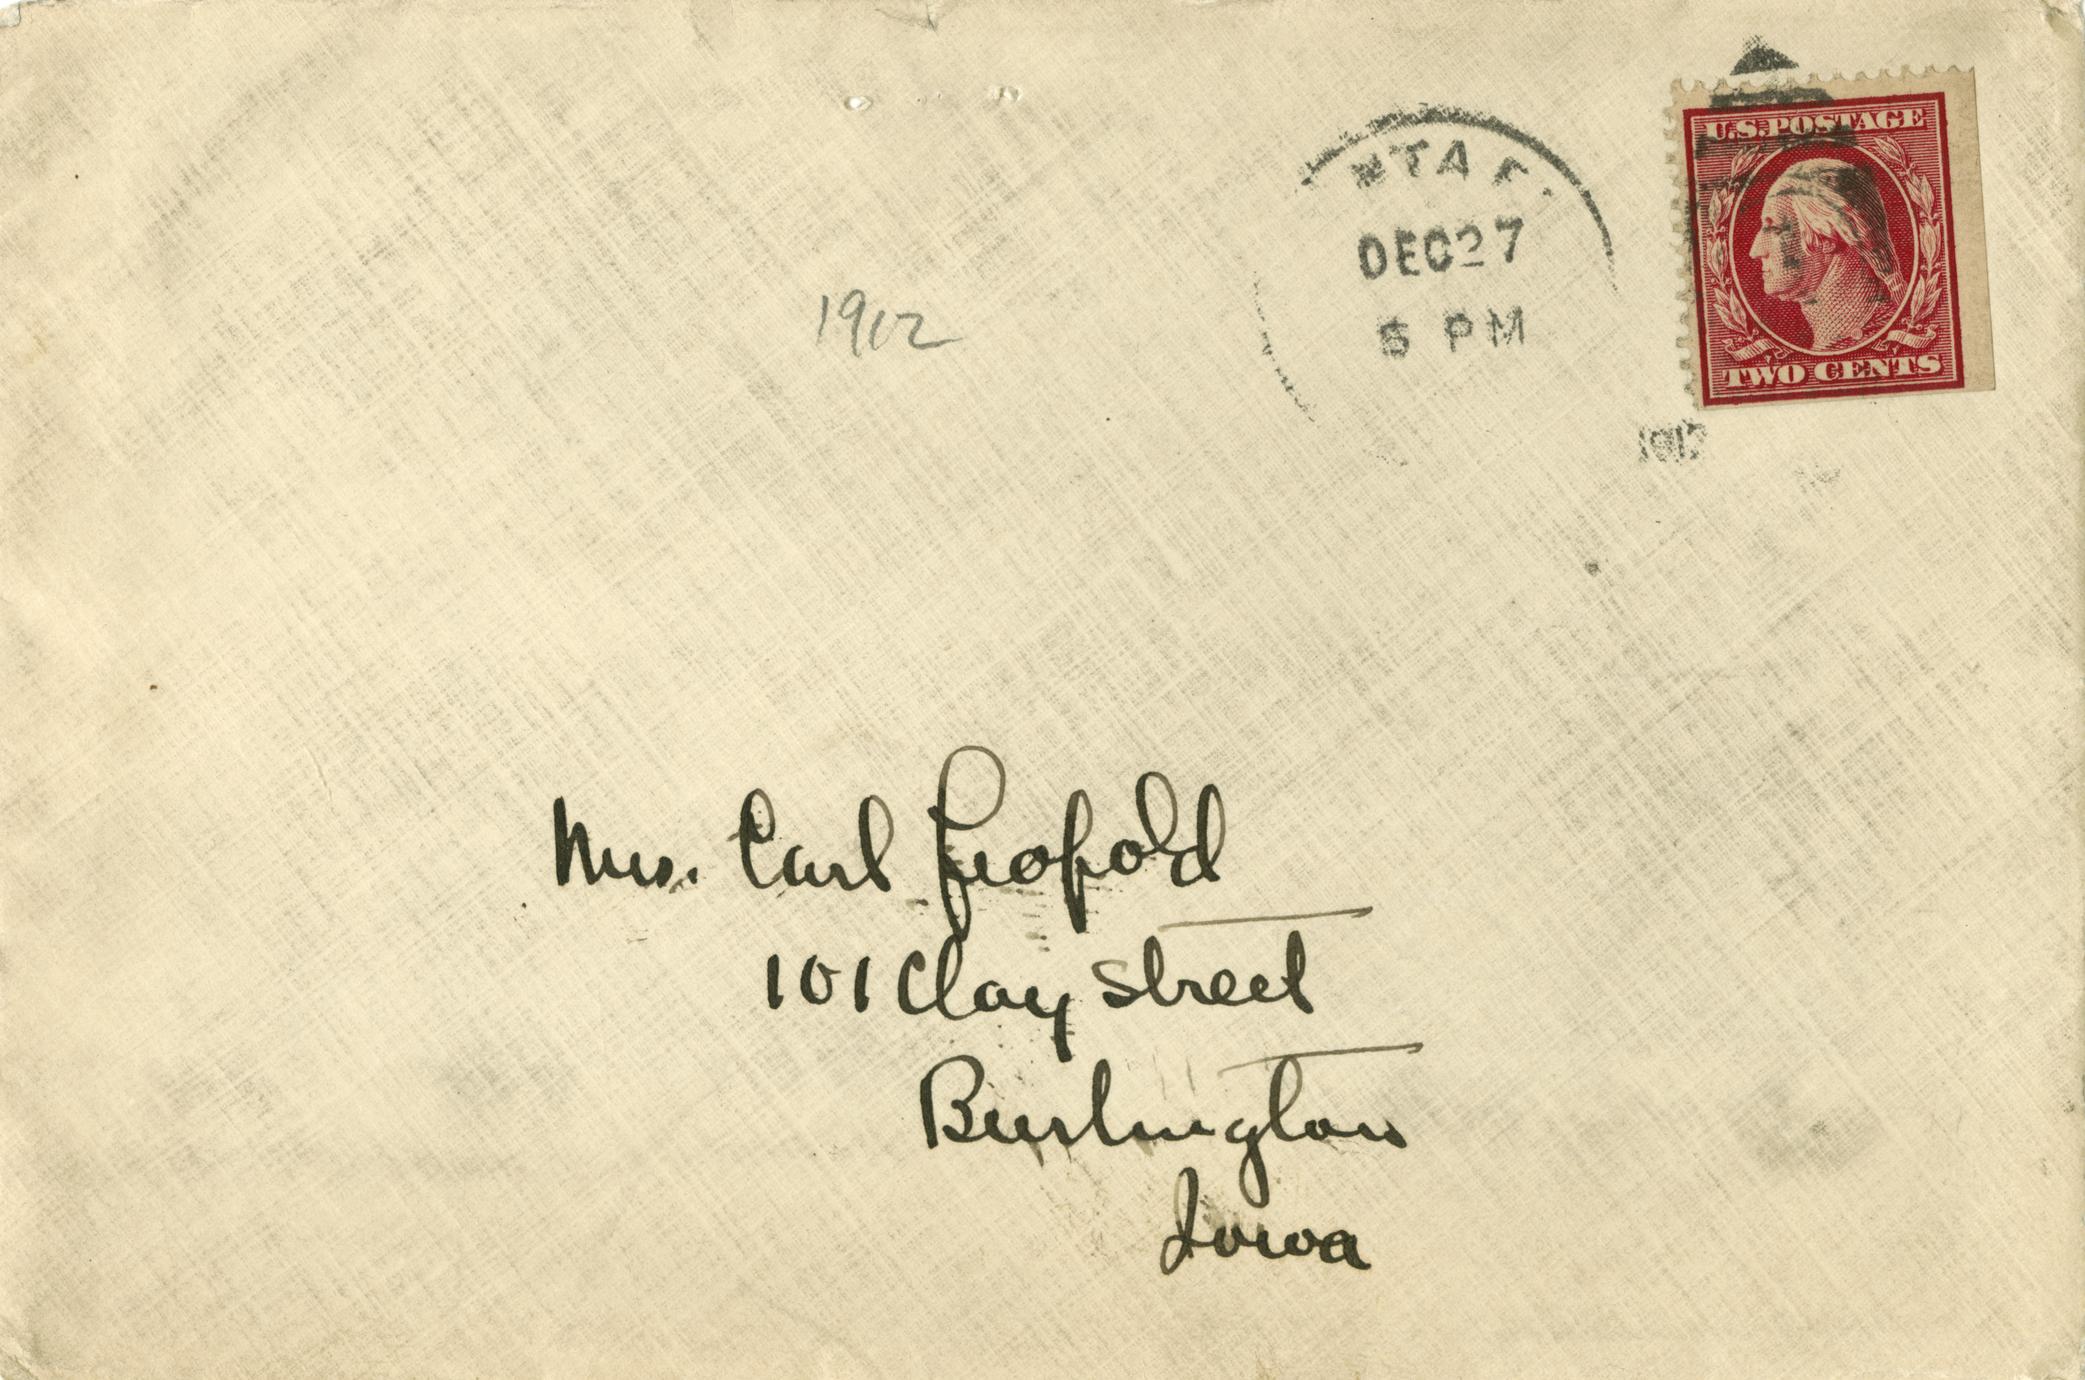 U.S.POSTAGE
NTA F
DEC 27
5 PM
TWO CENTS
1912
1912
Mrs. Carl Leopold
101 Clay Street
Burlington
Iowa